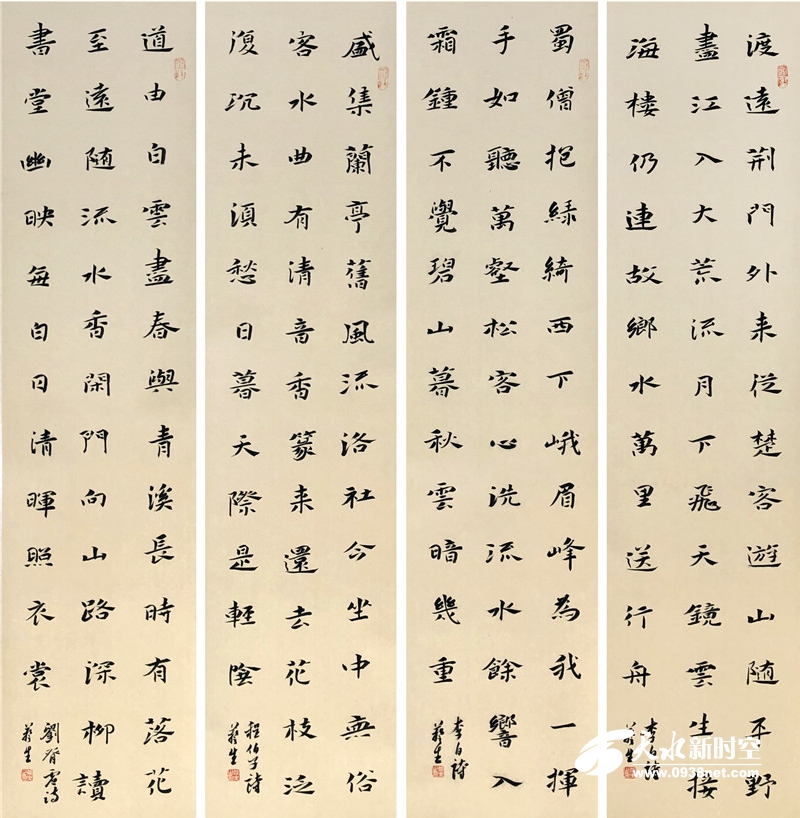 渡遠荆門外来從楚客遊山随平野
盡江入大荒流月下飛天鏡雲生接
海樓仍連故鄉水萬里送行舟
李白詩
蜀僧抱綠綺西下峨眉峰為我一揮
手如聽萬壑松客心洗流水餘響入
霜鍾不覺碧山暮秋雲暗幾重
李白詩
盛集蘭亭舊風流洛社今坐中無俗
客水曲有清音香篆来還去花枝泛
復沉未須愁日暮天際是輕陰
程伯子詩
道由白雲盡春與青溪長時有落花
至遠随流水香閑門向山路深柳讀
書堂幽映每白日清暉照衣裳
劉脊虛詩
天水新时空
www.0938net.com